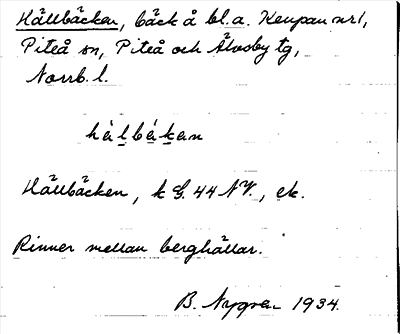 Hällbäcken, bäck å bl.a. Kempan nr 1,
Piteå sn, Piteå och Älvsby tg,
Norrb. l.
hä̀lbä́kan
Hällbäcken, k G. 44 NV., ek.
Rinner mellan berghällar.
B. Nygren 1934.